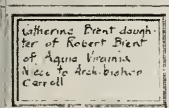 Catherine Brent daugh-
ter of Robert Brent
of Aquia Virginia
Niece to Archbishop
Carroll